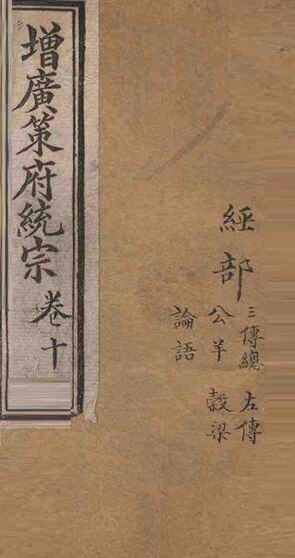 增廣策府統宗 卷十
經部
三傳總 左傳
公羊 榖梁
論語